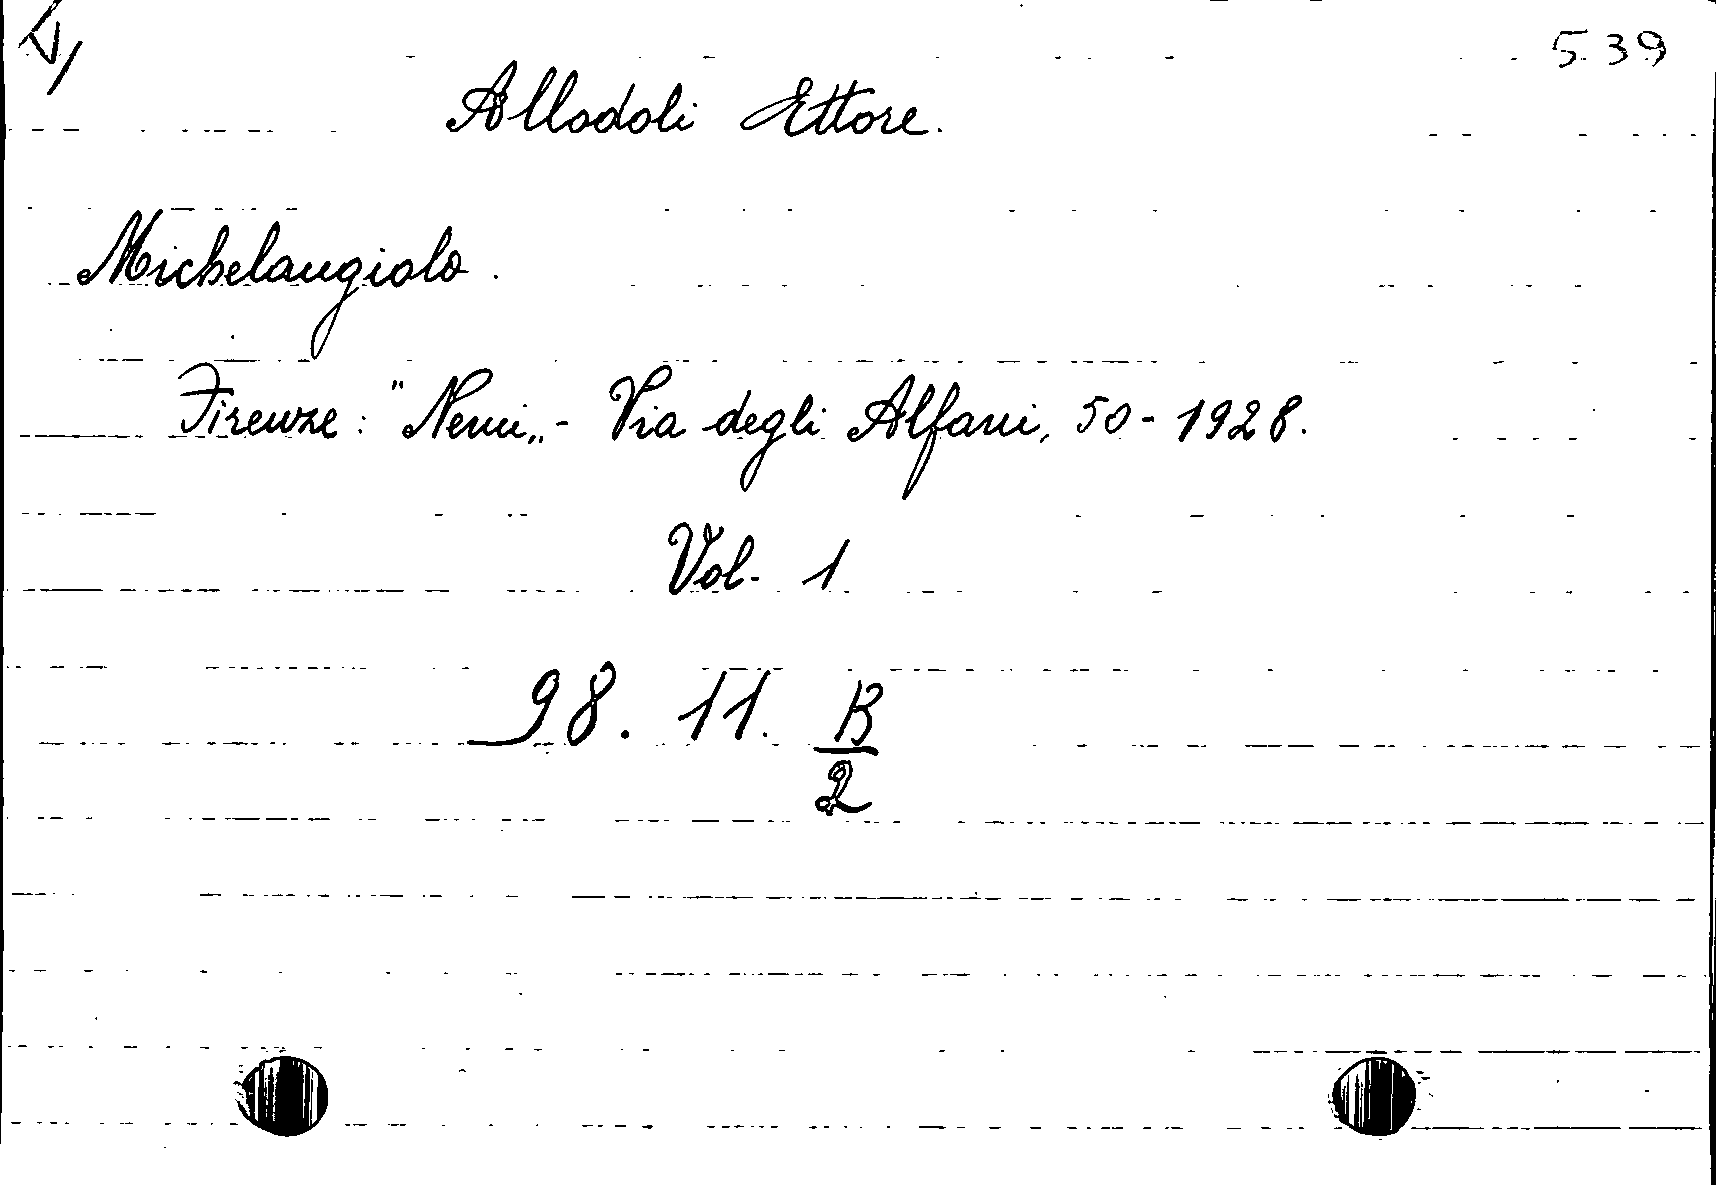 539
Allodoli Ettore.
Michelangiolo.
Firenze: "Nemi„ - Via degli Alfani, 50 - 1928.
Vol. 1
98. 11. B
2